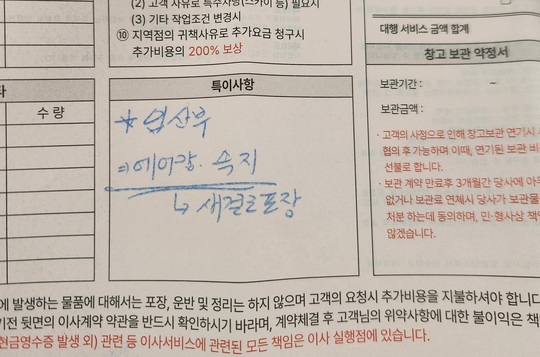 (2) 고객 사유로 특수차량(스카이 등) 필요시
(3) 기타 작업조건 변경시
⑩ 지역점의 귀책사유로 추가요금 청구시
추가비용의 200% 보상
특이사항
수 량
* 임산부
⇒에어캅. 속지
↳ 새걸로 포장
대행 서비스 금액 합계
창고 보관 약정서
보관기간 : ~
보관금액 :
· 고객의 사정으로 인해 창고보관 연기시
협의 후 가능하며 이때, 연기된 보관 비
선불로 합니다.
· 보관 계약 만료후 3개월간 당사에 아무
없거나 보관료 연체시 당사가 보관물
처분 하는데 동의하며, 민·형사상 책임
않겠습니다.
에 발생하는 물품에 대해서는 포장, 운반 및 정리는 하지 않으며 고객의 요청시 추가비용을 지불하셔야 합니다
기전 뒷면의 이사계약 약관을 반드시 확인하시기 바라며, 계약체결 후 고객님의 위약사항에 대한 불이익은 책
현금영수증 발생 외) 관련 등 이사서비스에 관련된 모든 책임은 이사 실행점에 있습니다.